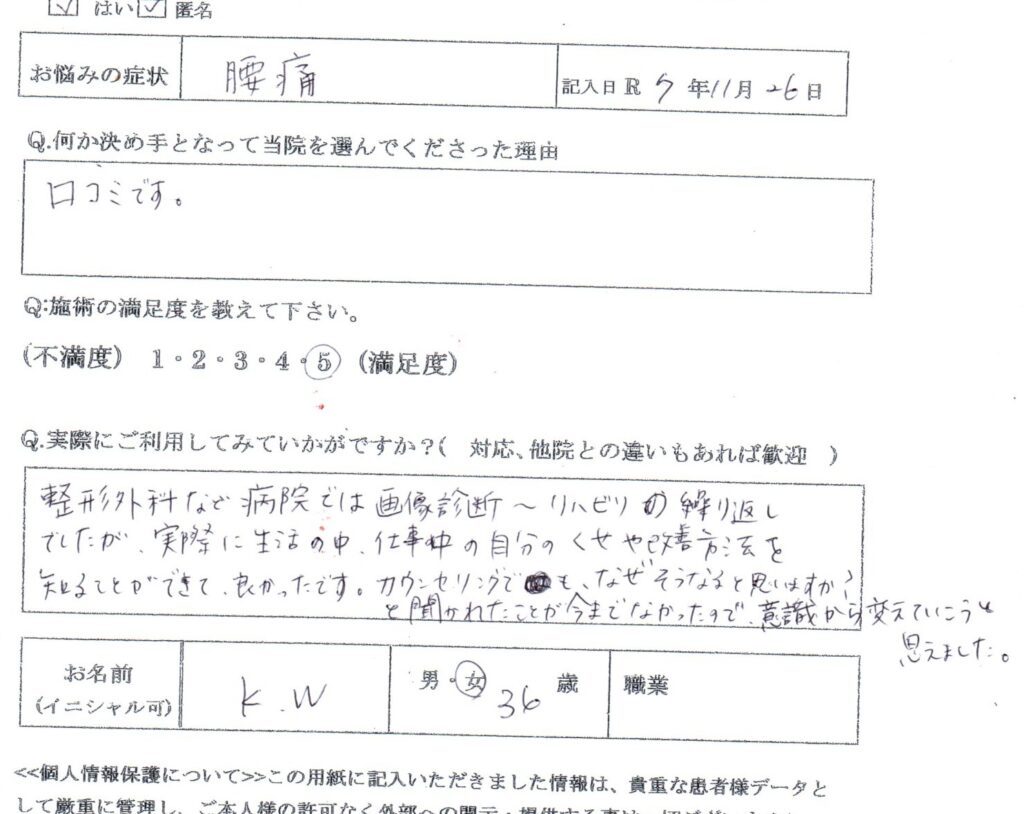 はい 匿名
お悩みの症状 腰痛 記入日 R 7 年 11 月 26 日
Q.何か決め手となって当院を選んでくださった理由
口コミです。
Q:施術の満足度を教えて下さい。
(不満度) 1・2・3・4・5 (満足度)
Q.実際にご利用してみていかがですか?( 対応、他院との違いもあれば歓迎 )
整形外科など病院では画像診断〜リハビリの繰り返し
でしたが、実際に生活の中、仕事中の自分のくせや改善方法を
知ることができて、良かったです。カウンセリングでも、なぜそうなると思いますか?
と聞かれたことが今までなかったので、意識から変えていこうと
思えました。
お名前 K.W 男・女 36 歳 職業
(イニシャル可)
<<個人情報保護について>>この用紙に記入いただきました情報は、貴重な患者様データと
して厳重に管理し、ご本人様の許可なく外部への開示・提供する事は